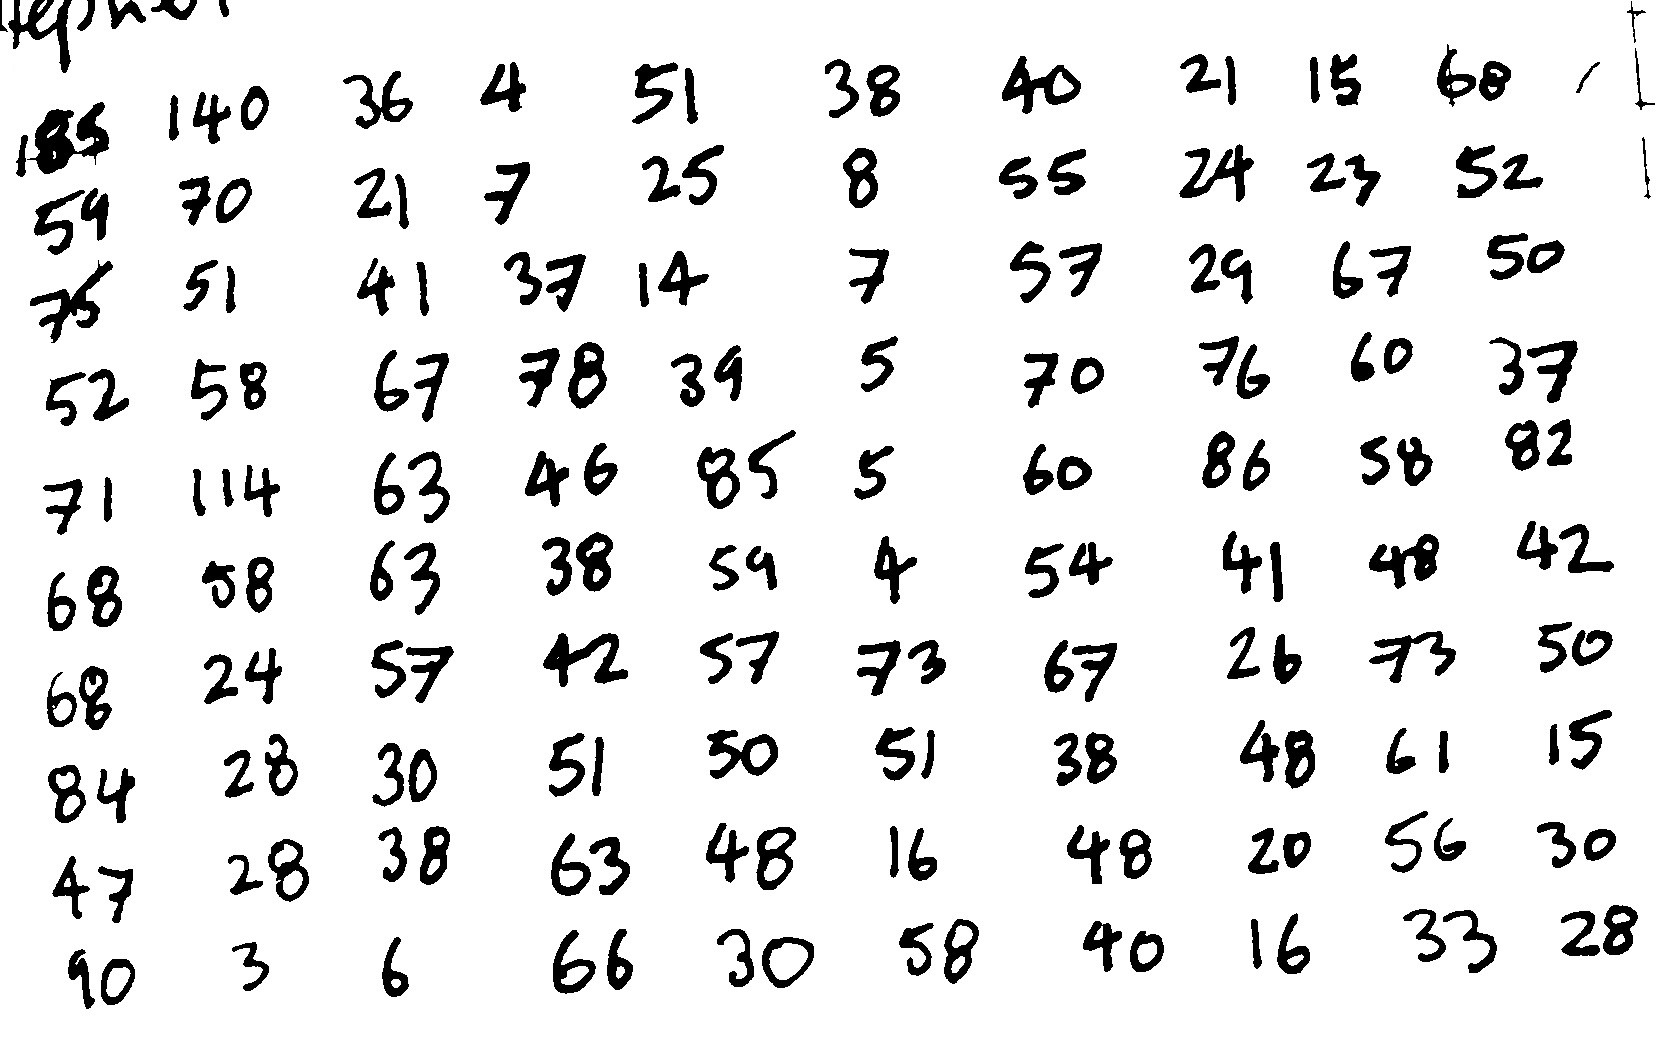 185 140 36 4 51 38 40 21 15 60
59 70 21 7 25 8 55 24 23 52
75 51 41 37 14 7 57 29 67 50
52 58 67 78 39 5 70 76 60 37
71 114 63 46 85 5 60 86 58 82
68 58 63 38 59 4 54 41 48 42
68 24 57 42 57 73 67 26 73 50
84 28 30 51 50 51 38 48 61 15
47 28 38 63 48 16 48 20 56 30
90 3 6 66 30 58 40 16 33 28